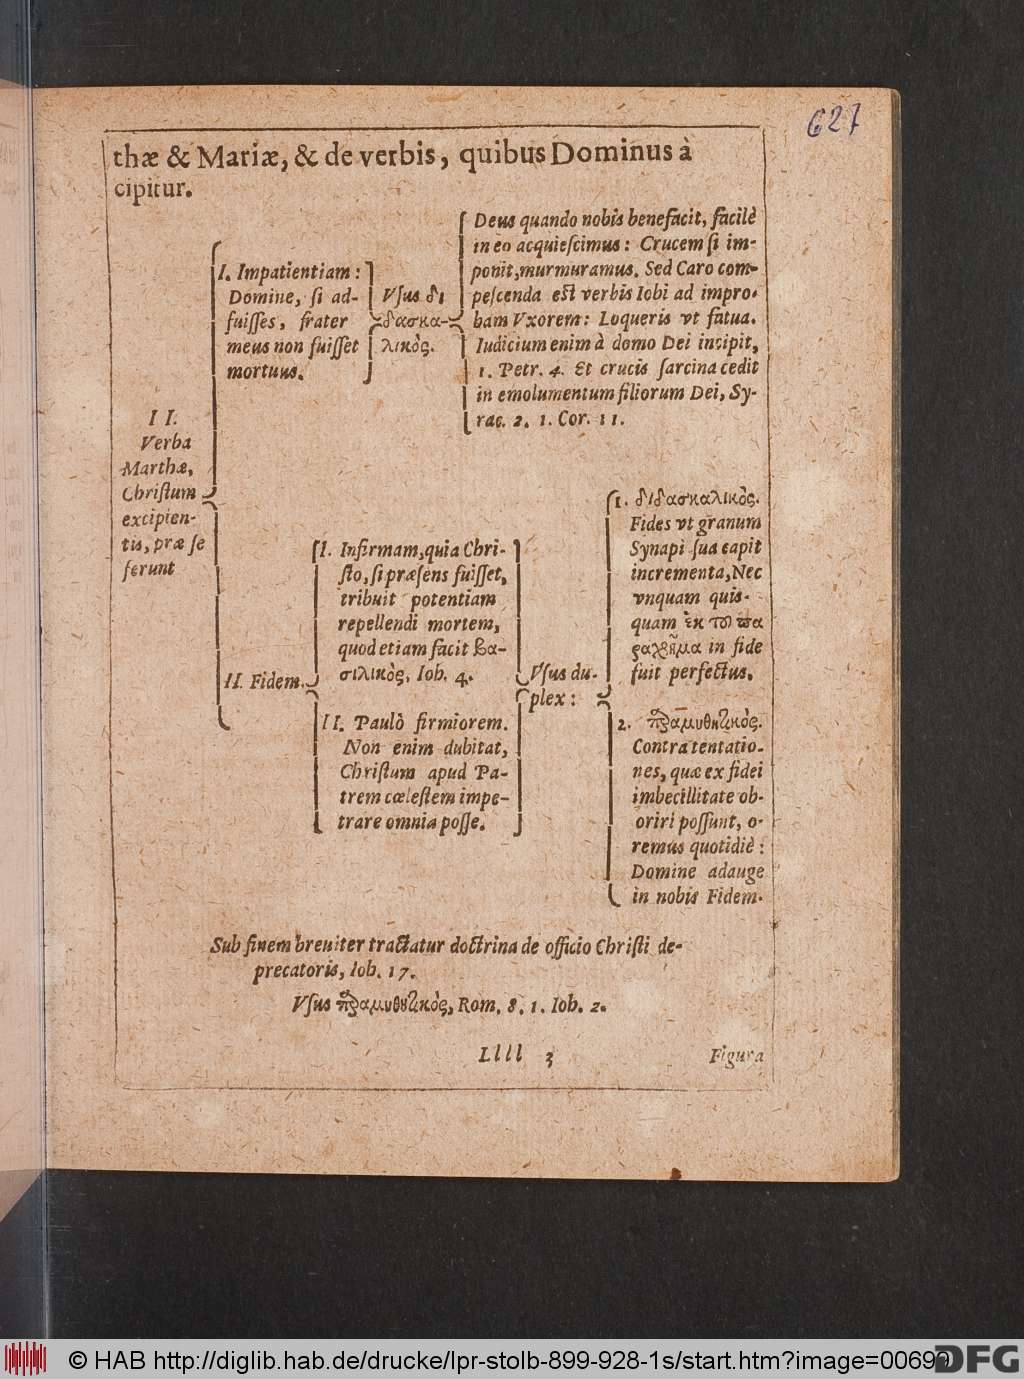 627
thæ & Mariæ, & de verbis, quibus Dominus à
cipitur.
II.
Verba
Marthæ,
Chriſtum
excipien-
tis, præ ſe
ferunt
I. Impatientiam:
Domine, ſi ad-
fuiſſes, frater
meus non fuiſſet
mortuus.
Vſus δι
δασκα-
λικὸς.
Deus quando nobis benefacit, facilè
in eo acquieſcimus: Crucem ſi im-
ponit, murmuramus. Sed Caro com-
peſcenda eſt verbis Iobi ad impro-
bam Vxorem: Loqueris vt fatua.
Iudicium enim à domo Dei incipit,
1. Petr. 4. Et crucis ſarcina cedit
in emolumentum filiorum Dei, Sy-
rac. 2. 1. Cor. 11.
II. Fidem.
I. Infirmam, quia Chri-
ſto, ſi præſens fuiſſet,
tribuit potentiam
repellendi mortem,
quod etiam facit βα-
σιλικὸς, Ioh. 4.
II. Paulò firmiorem.
Non enim dubitat,
Chriſtum apud Pa-
trem cœleſtem impe-
trare omnia poſſe.
Vſus du-
plex:
1. διδασκαλικὸς.
Fides vt granum
Synapi ſua capit
incrementa, Nec
vnquam quis-
quam ἐκ τοῦ πα
ραχρῆμα in fide
fuit perfectus.
2. παραμυθητικὸς.
Contra tentatio-
nes, quæ ex fidei
imbecillitate ob-
oriri poſſunt, o-
remus quotidiè:
Domine adauge
in nobis Fidem.
Sub finem breuiter tractatur doctrina de officio Chriſti de-
precatoris, Ioh. 17.
Vſus παραμυθητικὸς, Rom. 8. 1. Ioh. 2.
Llll 3 Figura
© HAB http://diglib.hab.de/drucke/lpr-stolb-899-928-1s/start.htm?image=00699
DFG